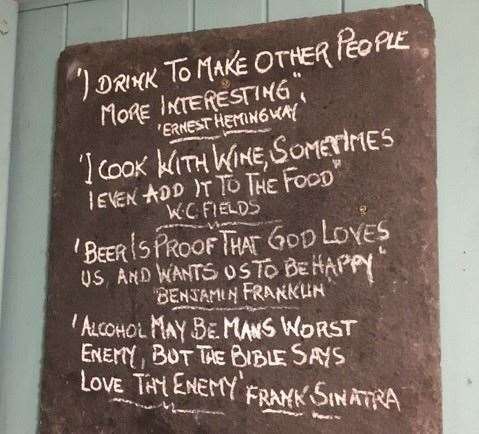 'I DRINK TO MAKE OTHER PEOPLE
MORE INTERESTING",
'ERNEST HEMINGWAY
'I COOK WITH WINE, SOMETIMES
I EVEN ADD IT TO THE FOOD"
W.C FIELDS
'BEER IS PROOF THAT GOD LOVES
US, AND WANTS US TO BE HAPPY"
"BENJAMIN FRANKLIN'
'ALCOHOL MAY BE MANS WORST
ENEMY, BUT THE BIBLE SAYS
LOVE THY ENEMY' FRANK SINATRA